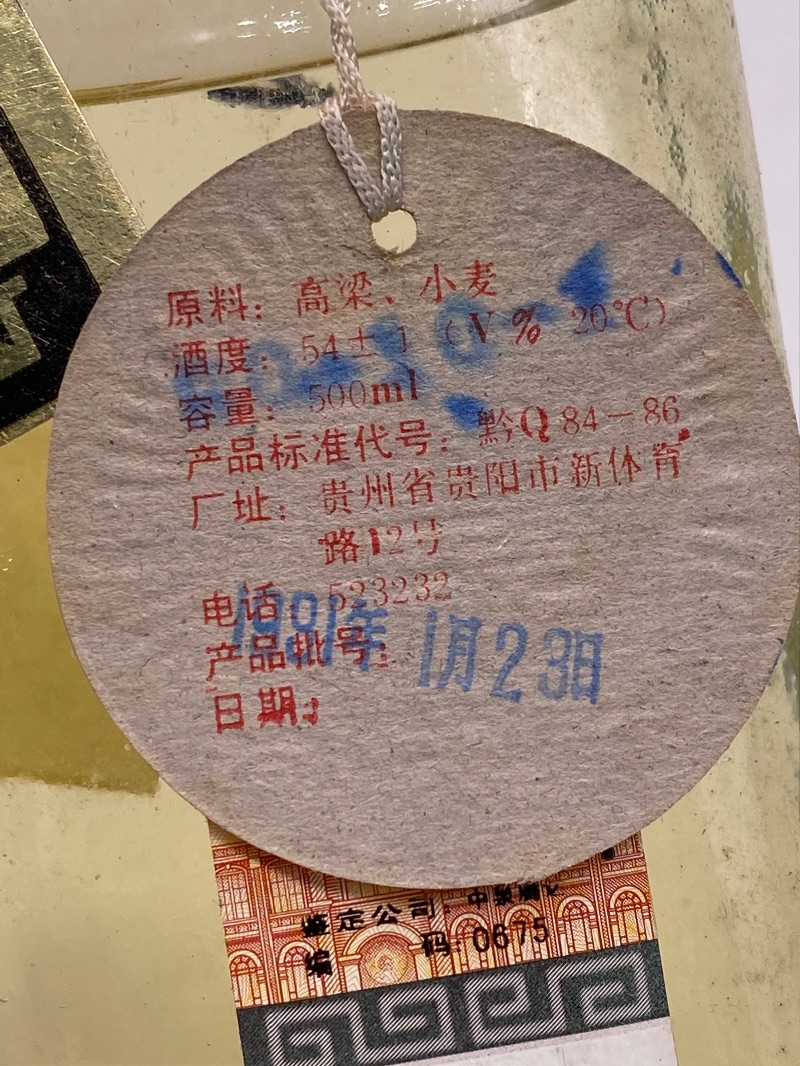 原料：高梁、小麦
酒度：54±1（V% 20℃）
容量：500ml
产品标准代号：黔Q84－86
厂址：贵州省贵阳市新体育
路12号
电话：523232
产品批号：
1991年1月23日
日期：
鉴定公司：中
编 码：0675